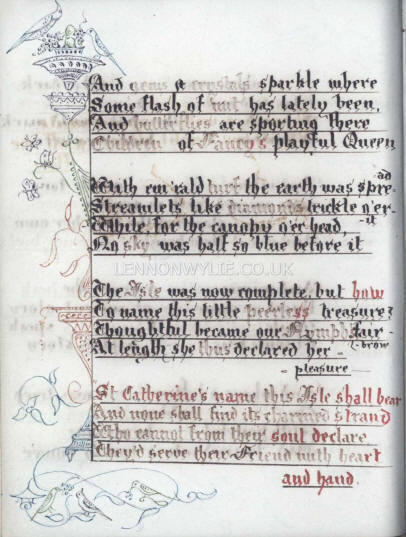 And gems & crystals sparkle where
Some flash of wit has lately been,
And butterflies are sporting there
Children of Fancy's playful Queen
With em'rald turf the earth was spre-ad
Streamlets like diamonds trickle o'er-it
While, for the canopy o'er head,
No sky was half so blue before it
LENNONWYLIE.CO.UK
The Isle was now complete, but how
To name this little peerless treasure?
Thoughtful became our Nymph fair-brow
At length she thus declared her
pleasure
St Catherine's name this Isle shall bear
And none shall find its charmed strand
Who cannot from their soul declare
They'd serve their Friend with heart
and hand.